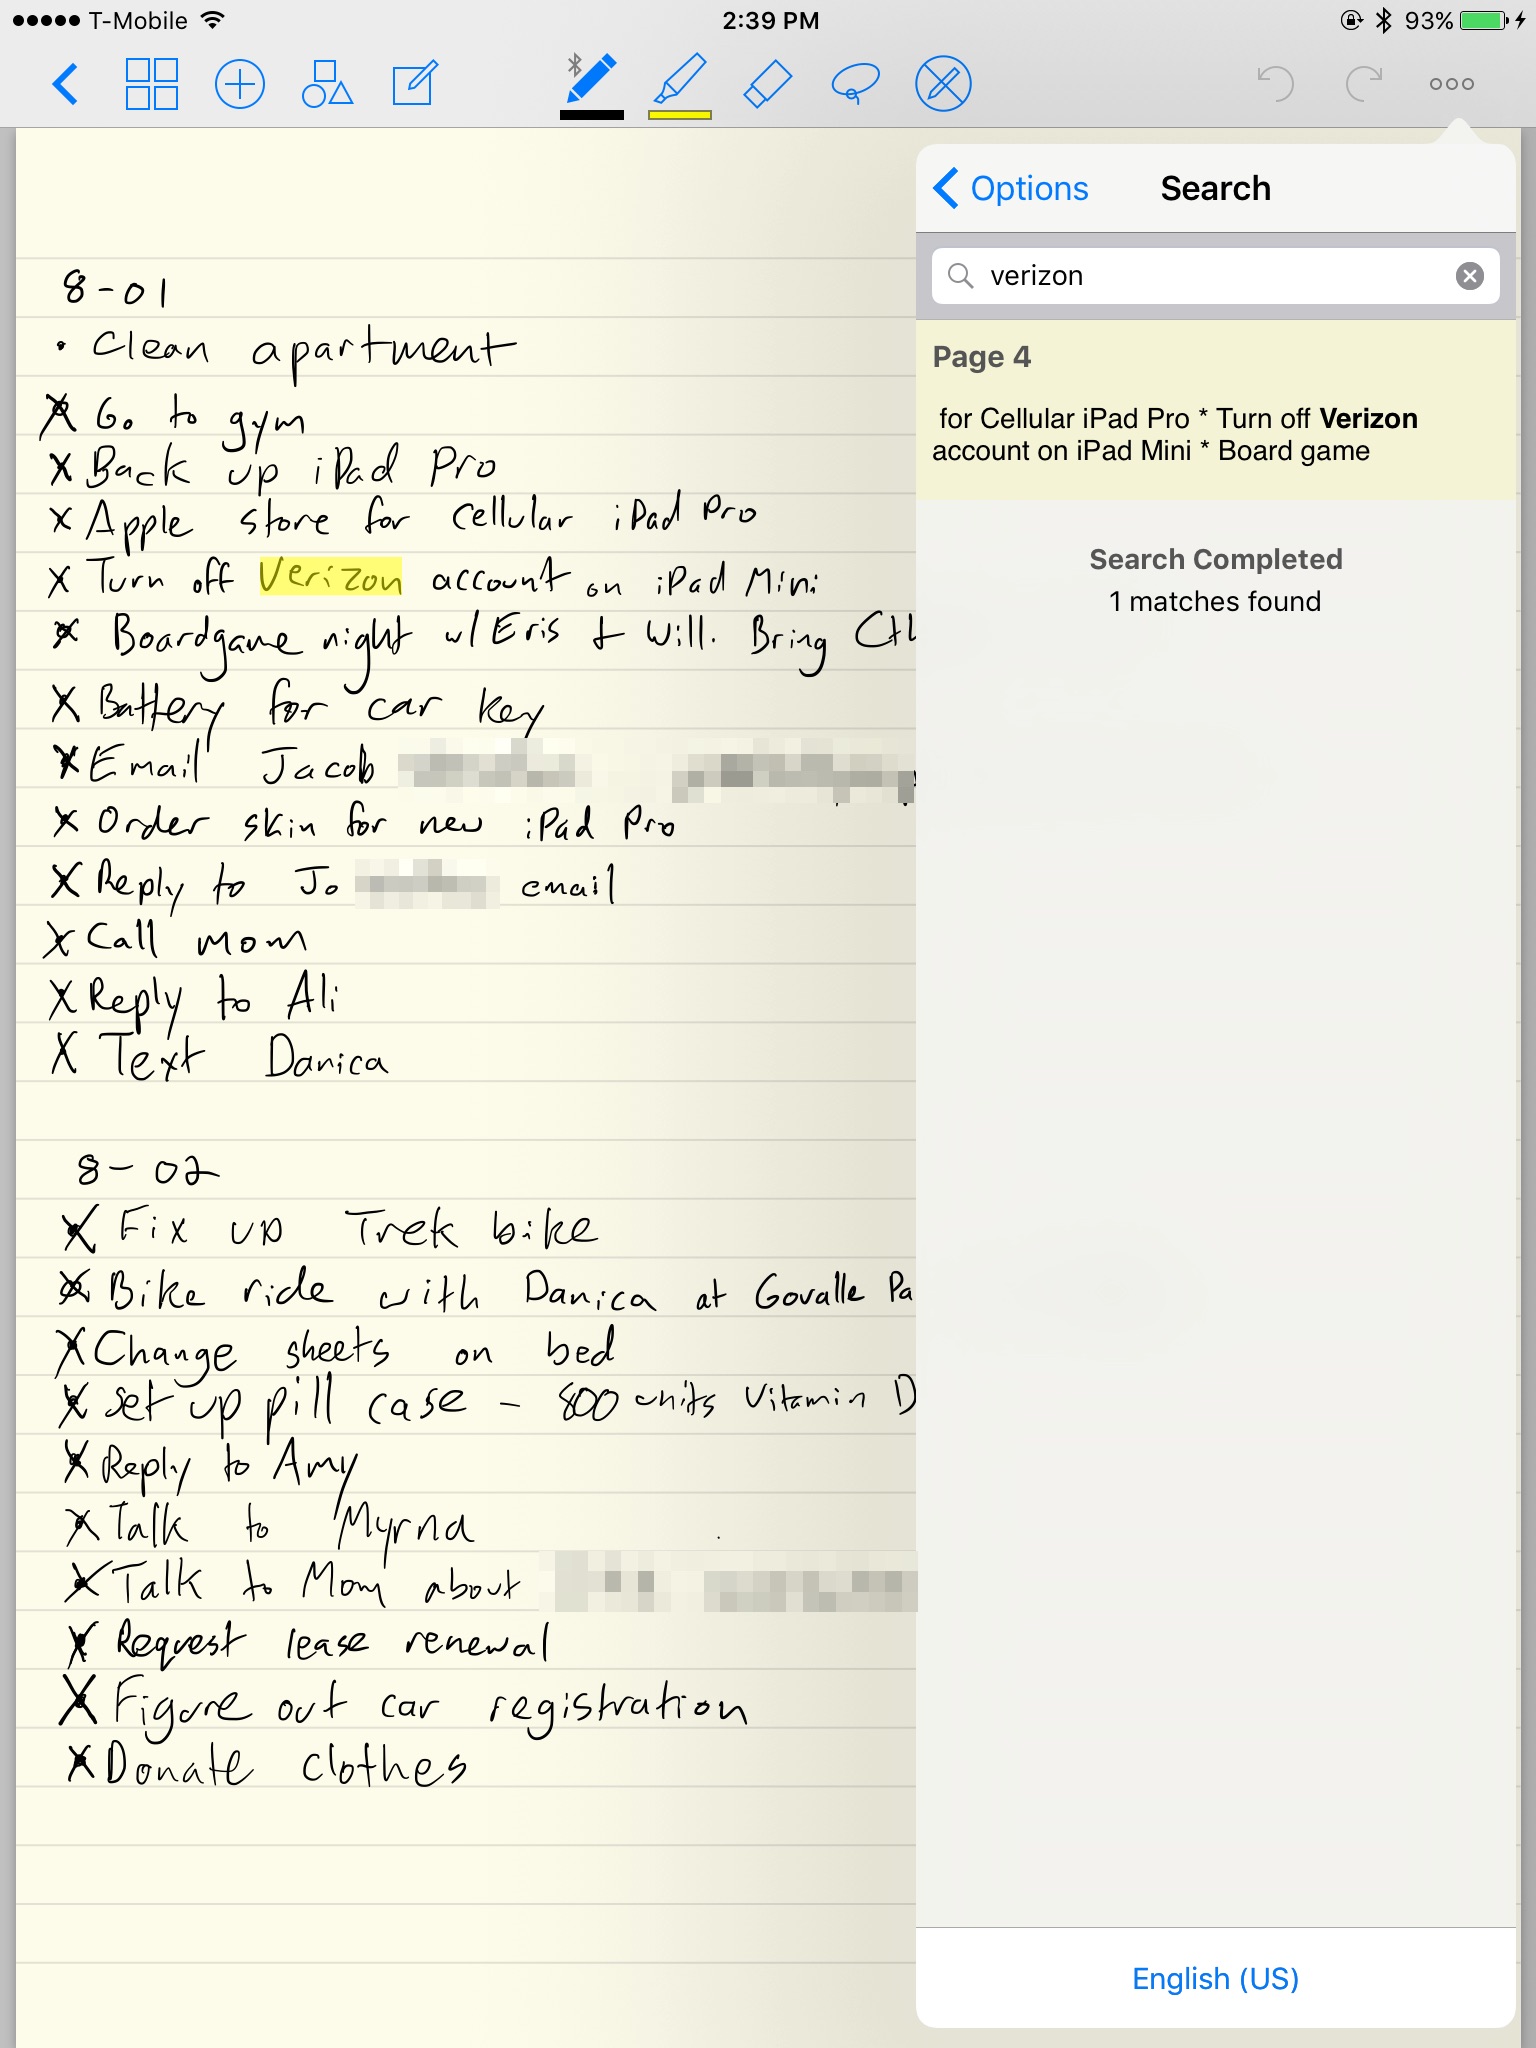 T-Mobile 2:39 PM 93%
8-01
• Clean apartment
X Go to gym
X Back up iPad Pro
X Apple store for cellular iPad Pro
X Turn off Verizon account on iPad Mini
X Boardgame night w/ Eris + Will. Bring
X Battery for car key
X Email Jacob
X Order skin for new iPad Pro
X Reply to Jo email
X Call mom
X Reply to Ali
X Text Danica
8-02
X Fix up Trek bike
X Bike ride with Danica at Govalle Pa
X Change sheets on bed
X Set up pill case - 800 units Vitamin D
X Reply to Amy
X Talk to Myrna
X Talk to Mom about
X Request lease renewal
X Figure out car registration
X Donate clothes
Options Search
verizon
Page 4
for Cellular iPad Pro * Turn off Verizon
account on iPad Mini * Board game
Search Completed
1 matches found
English (US)